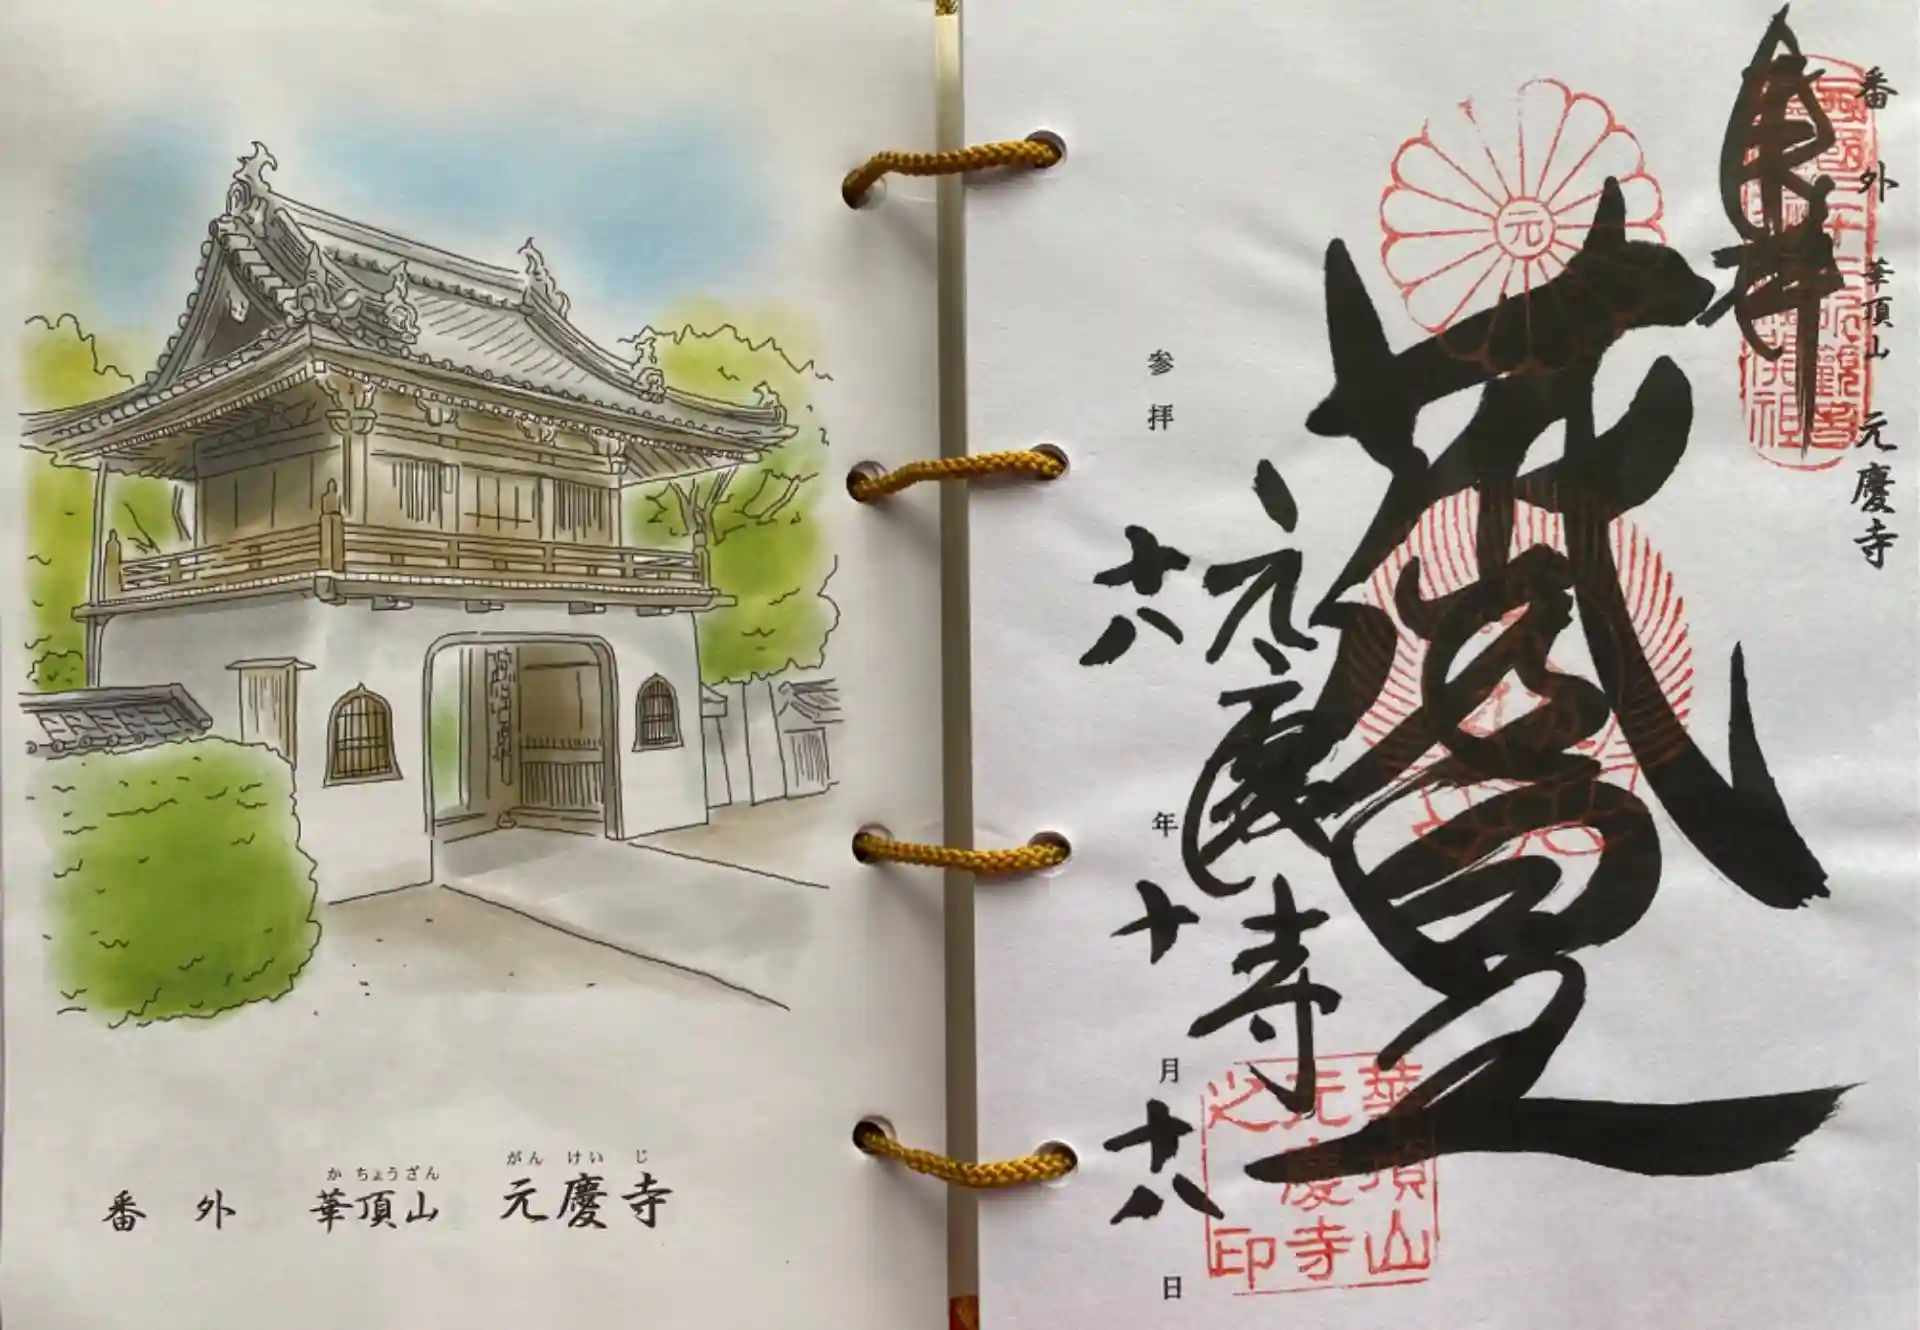 か ちょうざん がん けい じ
番外 華頂山 元慶寺
番外 華頂山 元慶寺
奉拝
元
元慶寺
参拝 十八年十月十八日
華頂山
元慶寺
之印